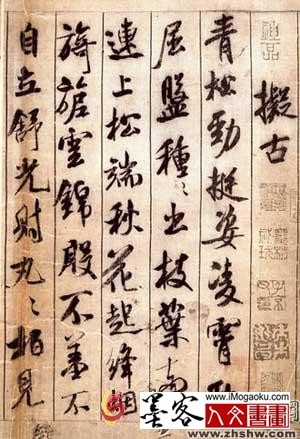 擬古
青松勁挺姿凌霄恥
屈盤種〻出枝葉牽
連上松端秋花起絳烟
旖旎雲錦殷不羞不
自立舒光射丸〻柏見
墨客
www.iMogaoku.com
人文書畫
www.zhshw.com